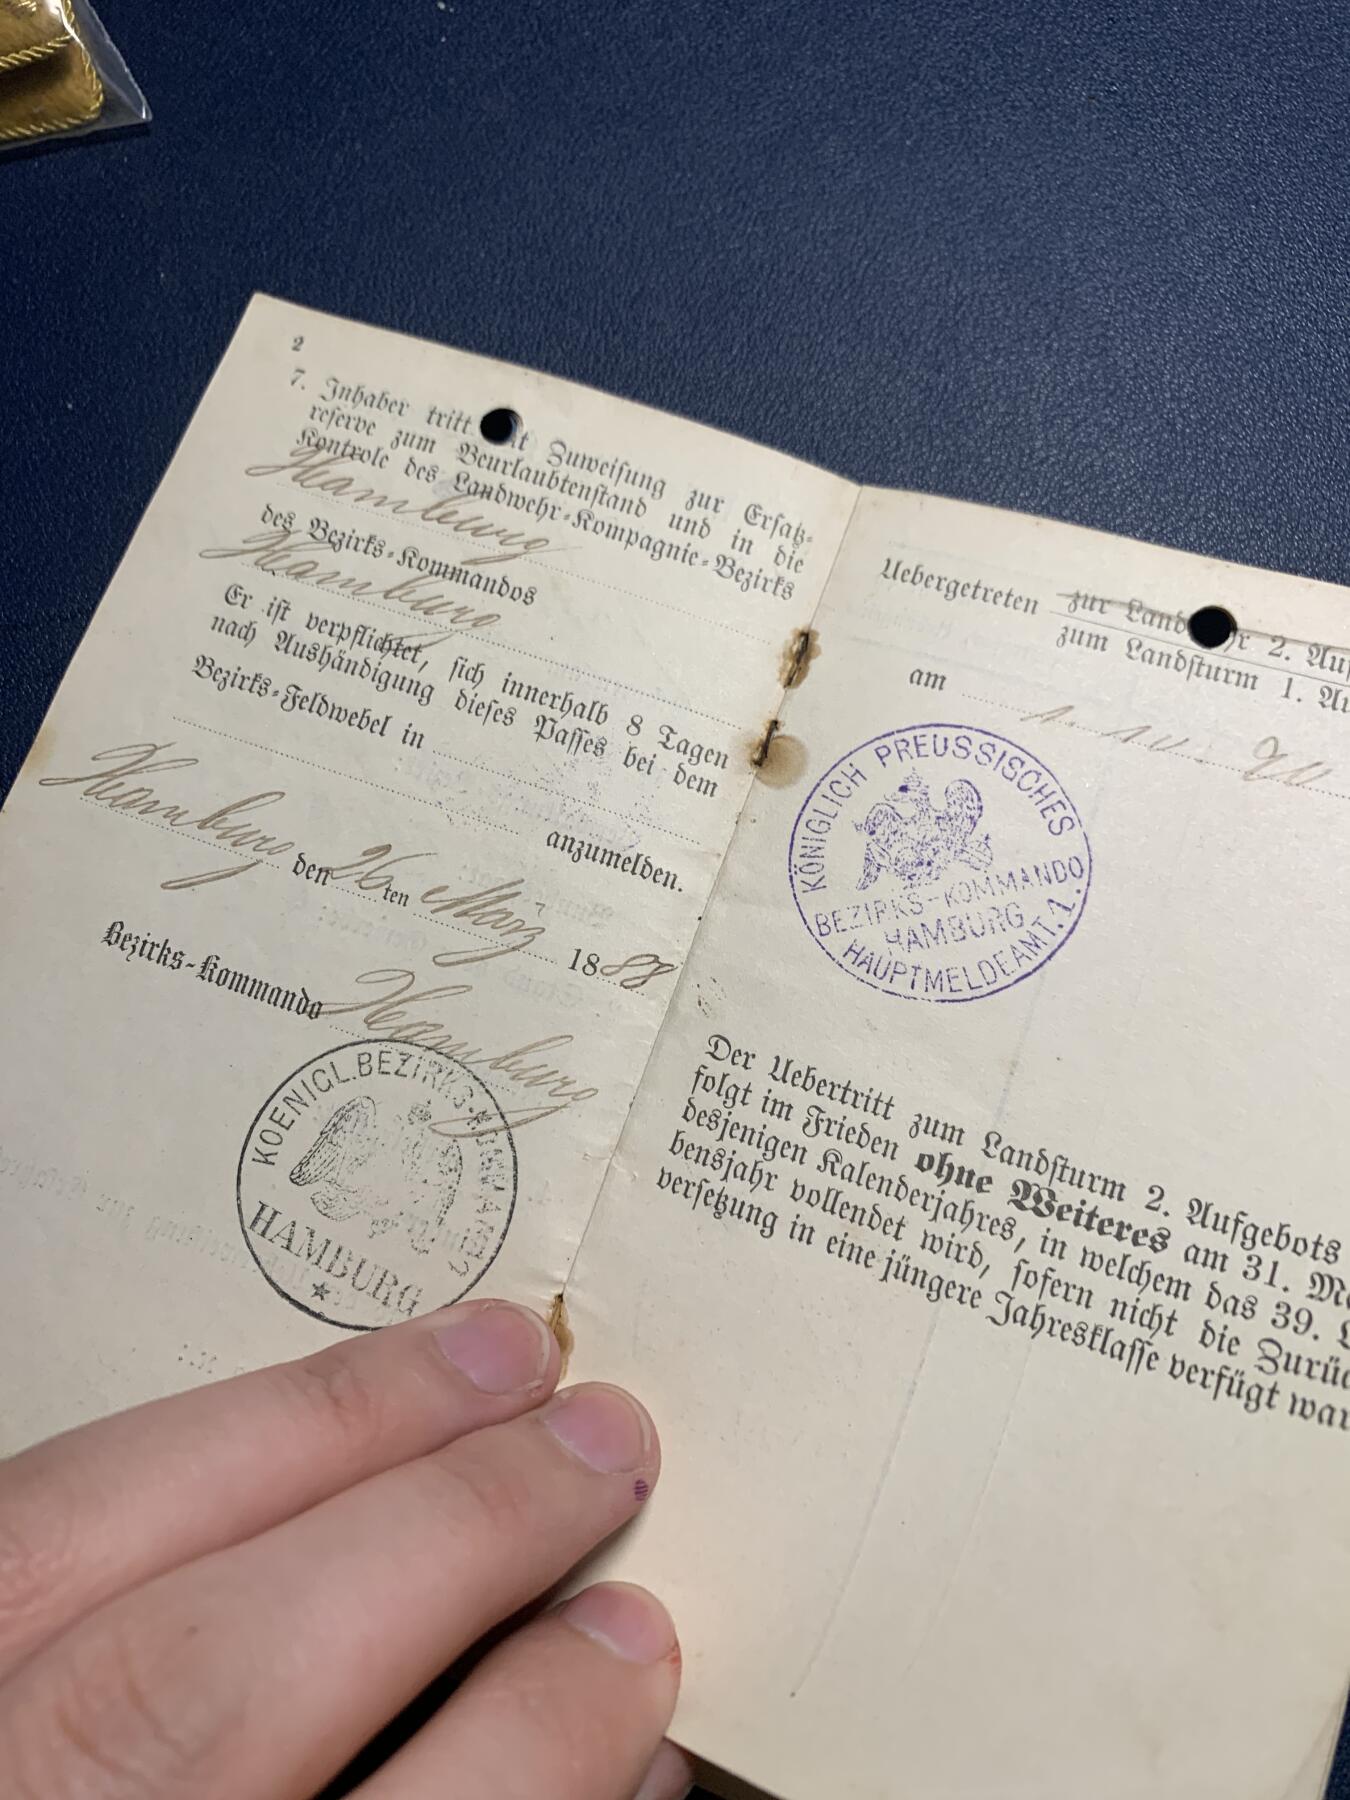 2
7. Inhaber tritt Zuweisung zur Ersatz-
reserve zum Beurlaubtenstand und in die
Kontrole des Landwehr-Kompagnie-Bezirks
Hamburg
des Bezirks-Kommandos
Hamburg
Er ist verpflichtet, sich innerhalb 8 Tagen
nach Aushändigung dieses Passes bei dem
Bezirks-Feldwebel in
anzumelden.
Hamburg den 26ten März 1888
Bezirks-Kommando Hamburg
KOENIGL. BEZIRKS-KOMMANDO
HAMBURG
Uebergetreten zur 2.
zum Landsturm 1.
am 1. 10.
KÖNIGLICH PREUSSISCHES
BEZIRKS-KOMMANDO
HAMBURG
HAUPTMELDEAMT. 1.
Der Uebertritt zum Landsturm 2. Aufgebots
folgt im Frieden ohne Weiteres am 31.
desjenigen Kalenderjahres, in welchem das 39.
bensjahr vollendet wird, sofern nicht die
versetzung in eine jüngere Jahresklasse verfügt